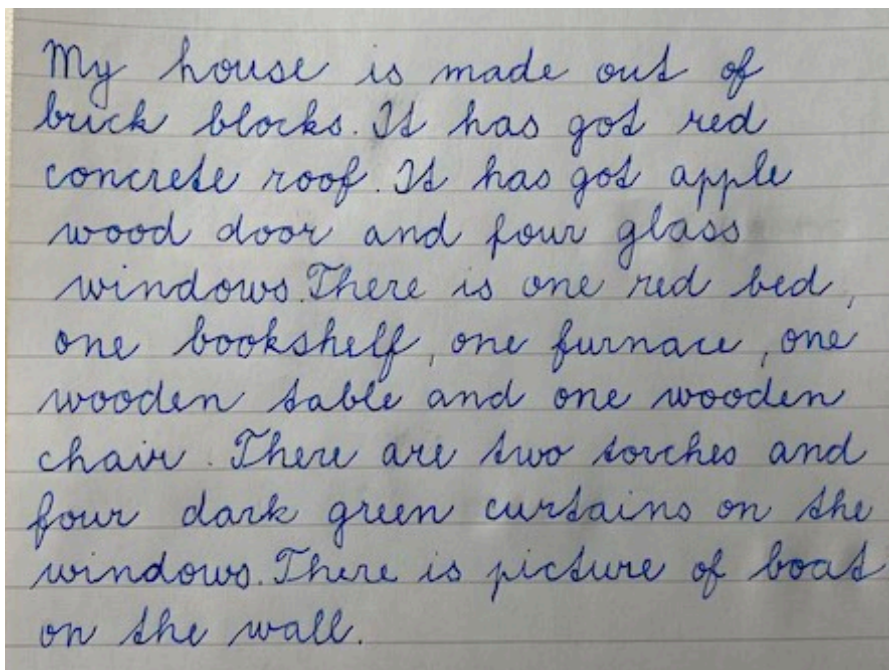 My house is made out of
brick blocks. It has got red
concrete roof. It has got apple
wood door and four glass
windows. There is one red bed,
one bookshelf, one furnace, one
wooden table and one wooden
chair. There are two torches and
four dark green curtains on the
windows. There is picture of boat
on the wall.